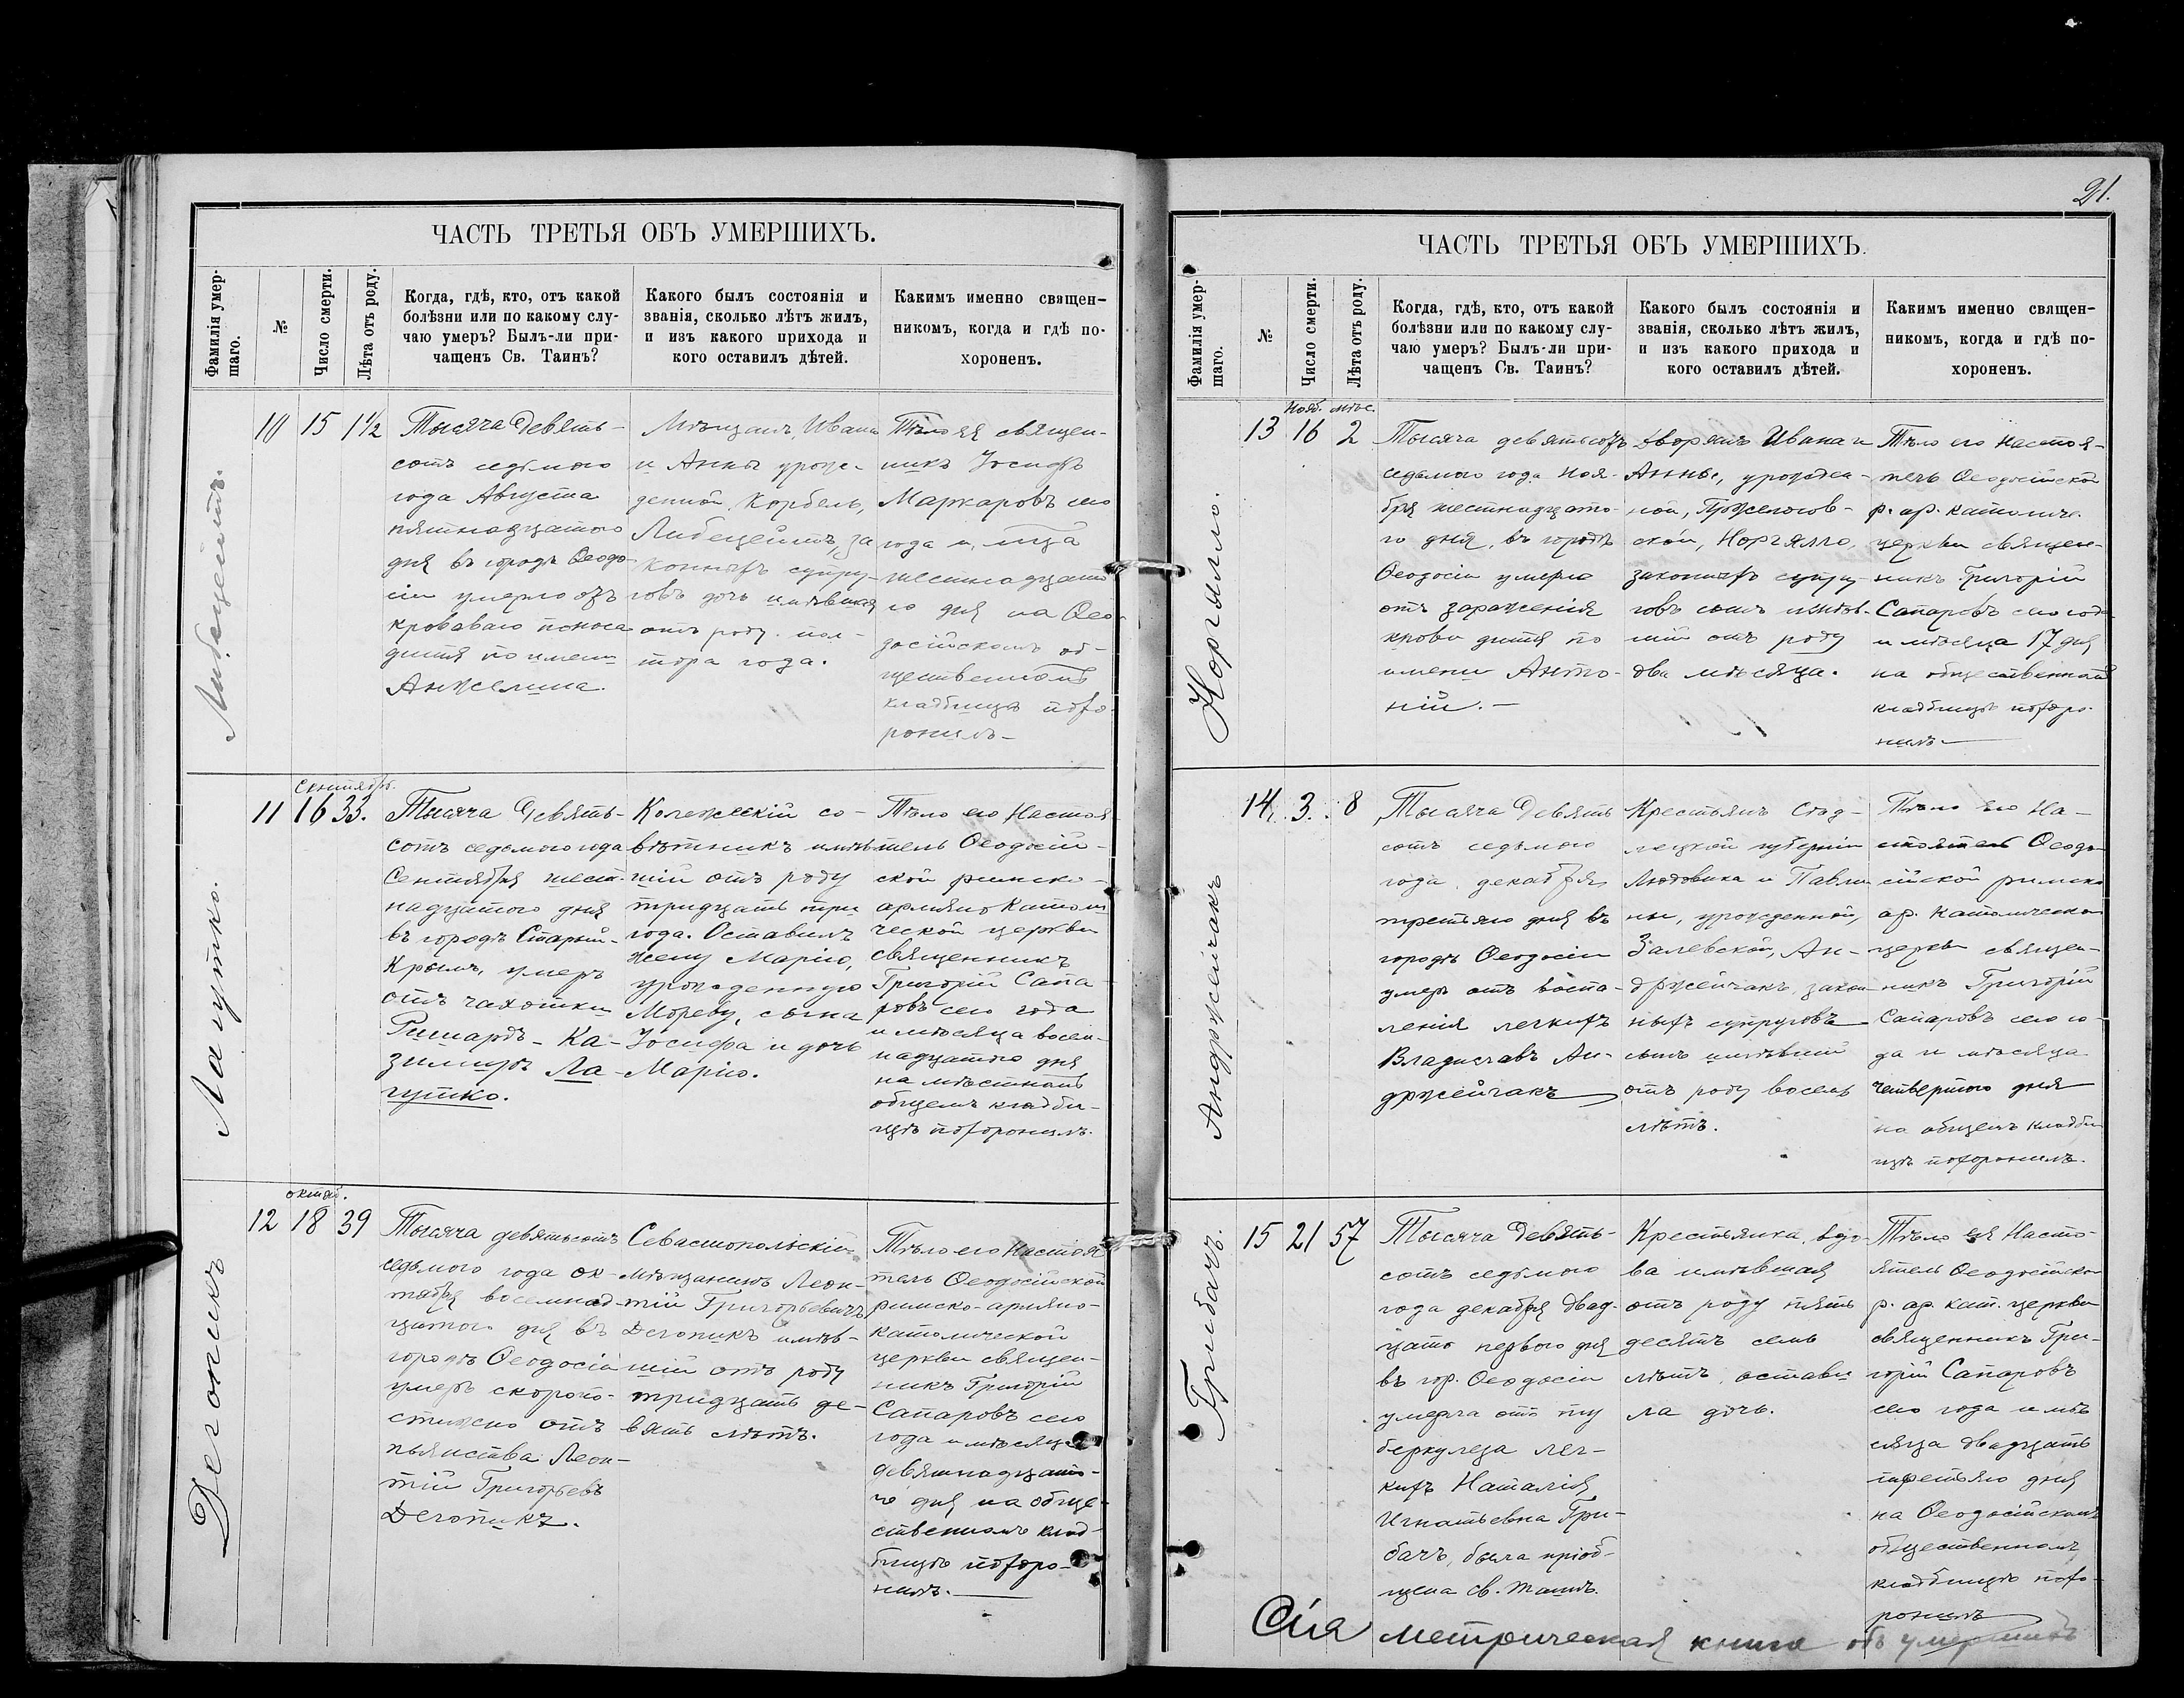 ЧАСТЬ ТРЕТЬЯ ОБЪ УМЕРШИХЪ.
Фамилія умер-
шаго.
№
Число смерти.
Лѣта отъ роду.
Когда, гдѣ, кто, отъ какой
болѣзни или по какому слу-
чаю умеръ? Былъ-ли при-
чащенъ Св. Таинъ?
Какого былъ состоянія и
званія, сколько лѣтъ жилъ,
и изъ какого прихода и
кого оставилъ дѣтей.
Какимъ именно священ-
никомъ, когда и гдѣ по-
хороненъ.
Либецеймъ.
10 15 1½
Тысяча девять-
сотъ седьмого
года Августа
пятнадцатого
дня въ городѣ Ѳеодо-
сіи умерло отъ
кроваваго поноса
дитя по имени
Анжелина.
Мѣщанъ, Ивана
и Анны урож-
денной Корбель,
Либецеймъ, за
конныхъ супру-
говъ дочь имѣвшая
отъ роду пол-
тора года.
Тѣло ея священ-
никъ Іосифъ
Маркаровъ сего
года и мѣсяца
шестнадцато
го дня на Ѳео-
досійскомъ об-
щественномъ
кладбищѣ похо-
ронилъ-
Лагутко.
Сентябр.
11 16 33.
Тысяча Девять-
сотъ седьмого года
Сентября шест-
надцатого дня
въ городѣ Старый-
Крымъ, умеръ
отъ чахотки
Ришардъ-Ка-
зимиръ Ла-
гутко.
Колежскій со-
вѣтникъ имѣв
шій отъ роду
тридцать три
года. Оставилъ
жену Марію,
урожденную
Мореву, сына
Іосифа и дочь
Марію.
Тѣло его Настоя-
тель Ѳеодосій-
ской римско-
армяно Католи
ческой церкви
священникъ
Григорій Сапа-
ровъ сего года
и мѣсяца восем-
надцатого дня
на мѣстномъ
общемъ кладби-
щѣ похоронилъ.
Дегоникъ
октяб.
12 18 39
Тысяча девятьсотъ
седьмого года ок-
тября восемнад-
цатого дня въ
городѣ Ѳеодосіи
умеръ скоропо-
стижно отъ
пьянства Леон-
тій Григорьевъ
Дегоникъ.
Севастопольскій
мѣщанинъ Леон-
тій Григорьевичъ
Дегоникъ имѣв-
шій отъ роду
тридцать де-
вять лѣтъ.
Тѣло его Настоя
тель Ѳеодосійской
римско-армяно-
католической
церкви священ-
никъ Григорій
Сапаровъ сего
года и мѣсяца
девятнадцато-
го дня на обще-
ственномъ клад-
бищѣ похоро-
нилъ.
21.
ЧАСТЬ ТРЕТЬЯ ОБЪ УМЕРШИХЪ.
Фамилія умер-
шаго.
№
Число смерти.
Лѣта отъ роду.
Когда, гдѣ, кто, отъ какой
болѣзни или по какому слу-
чаю умеръ? Былъ-ли при-
чащенъ Св. Таинъ?
Какого былъ состоянія и
званія, сколько лѣтъ жилъ,
и изъ какого прихода и
кого оставилъ дѣтей.
Какимъ именно священ-
никомъ, когда и гдѣ по-
хороненъ.
Норгялло.
Нояб. мѣс.
13 16 2
Тысяча девятьсотъ
седьмого года ноя-
бря шестнадцато-
го дня, въ городѣ
Ѳеодосіи умерло
отъ зараженія
крови дитя по
имени Анто-
ній.-
Дворянъ Ивана и
Анны, урожден-
ной,
ской, Норгялло,
законныхъ супру-
говъ сынъ имѣв-
шій отъ роду
два мѣсяца.
Тѣло его настоя-
тель Ѳеодосійской
р. ар. католич.
церкви священ-
никъ Григорій
Сапаровъ сего года
и мѣсяца 17 дня
на общественномъ
кладбищѣ похоро-
нилъ-
Андржейчакъ
14. 3. 8
Тысяча Девять
сотъ седьмого
года, декабря
третьяго дня въ
городѣ Ѳеодосіи
умеръ отъ воспа-
ленія легкихъ
Владиславъ Ан-
држейчакъ
Крестьянъ Сѣд-
лецкой губерніи
Людовика и Павли
ны, урожденной,
Залевской, Ан-
држейчакъ, закон
ныхъ супруговъ
сынъ имѣвшій
отъ роду восемь
лѣтъ.
Тѣло его На-
стоятель Ѳеодо
сійской римско
ар. католическо
церкви священ-
никъ Григорій
Сапаровъ сего го-
да и мѣсяца
четвертого дня
на общемъ кладби
щѣ похоронилъ.
Грибачъ.
15 21 57
Тысяча Девять-
сотъ седьмого
года декабря двад-
цать перваго дня
въ гор. Ѳеодосіи
умерла отъ ту
беркулеза лег-
кихъ Наталія
Игнатьевна Гри-
бачъ, была пріоб-
щена св. таинъ.
Крестьянка, вдо-
ва имѣвшая
отъ роду пять
десятъ семь
лѣтъ, остави
ла дочь.
Тѣло ея Насто-
ятель Ѳеодосійско
р. ар. кат. церкви
священникъ Гри-
горій Сапаровъ
сего года и мѣ
сяца двадцать
третьяго дня
на Ѳеодосійскомъ
общественномъ
кладбищѣ похо-
ронилъ
Сія метрическая книга объ умершихъ